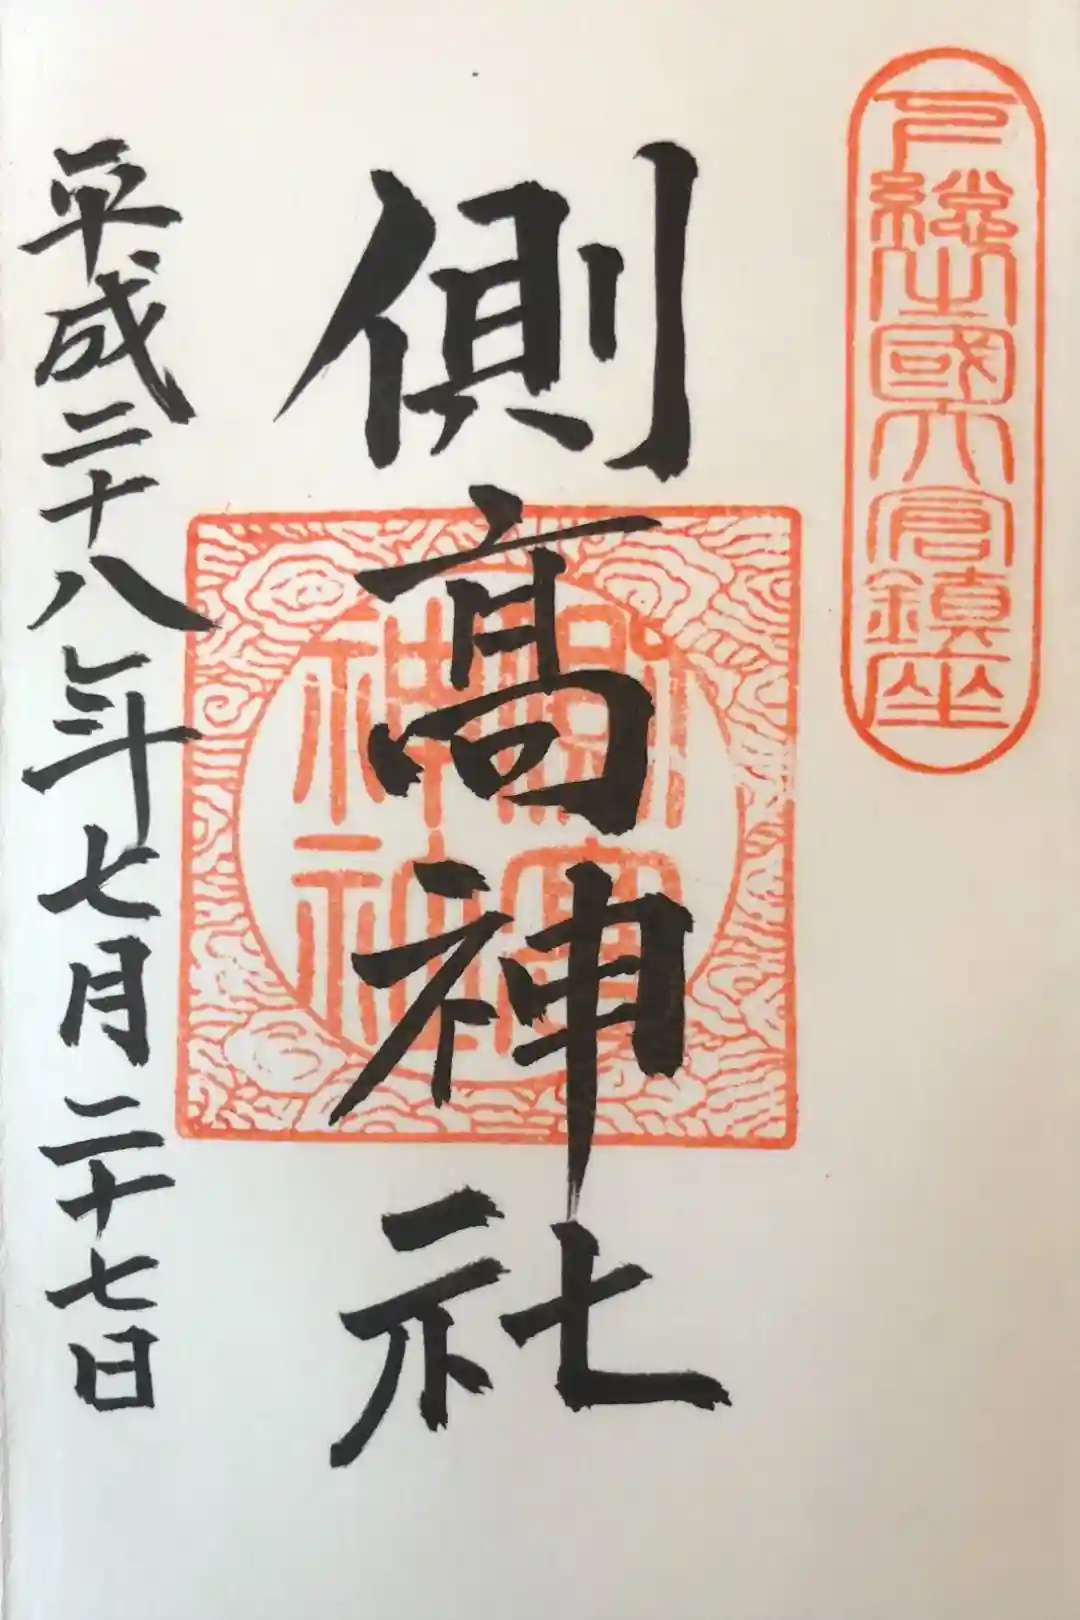 下總之國大倉鎮座
側髙神社
側高
神社
平成二十八年七月二十七日